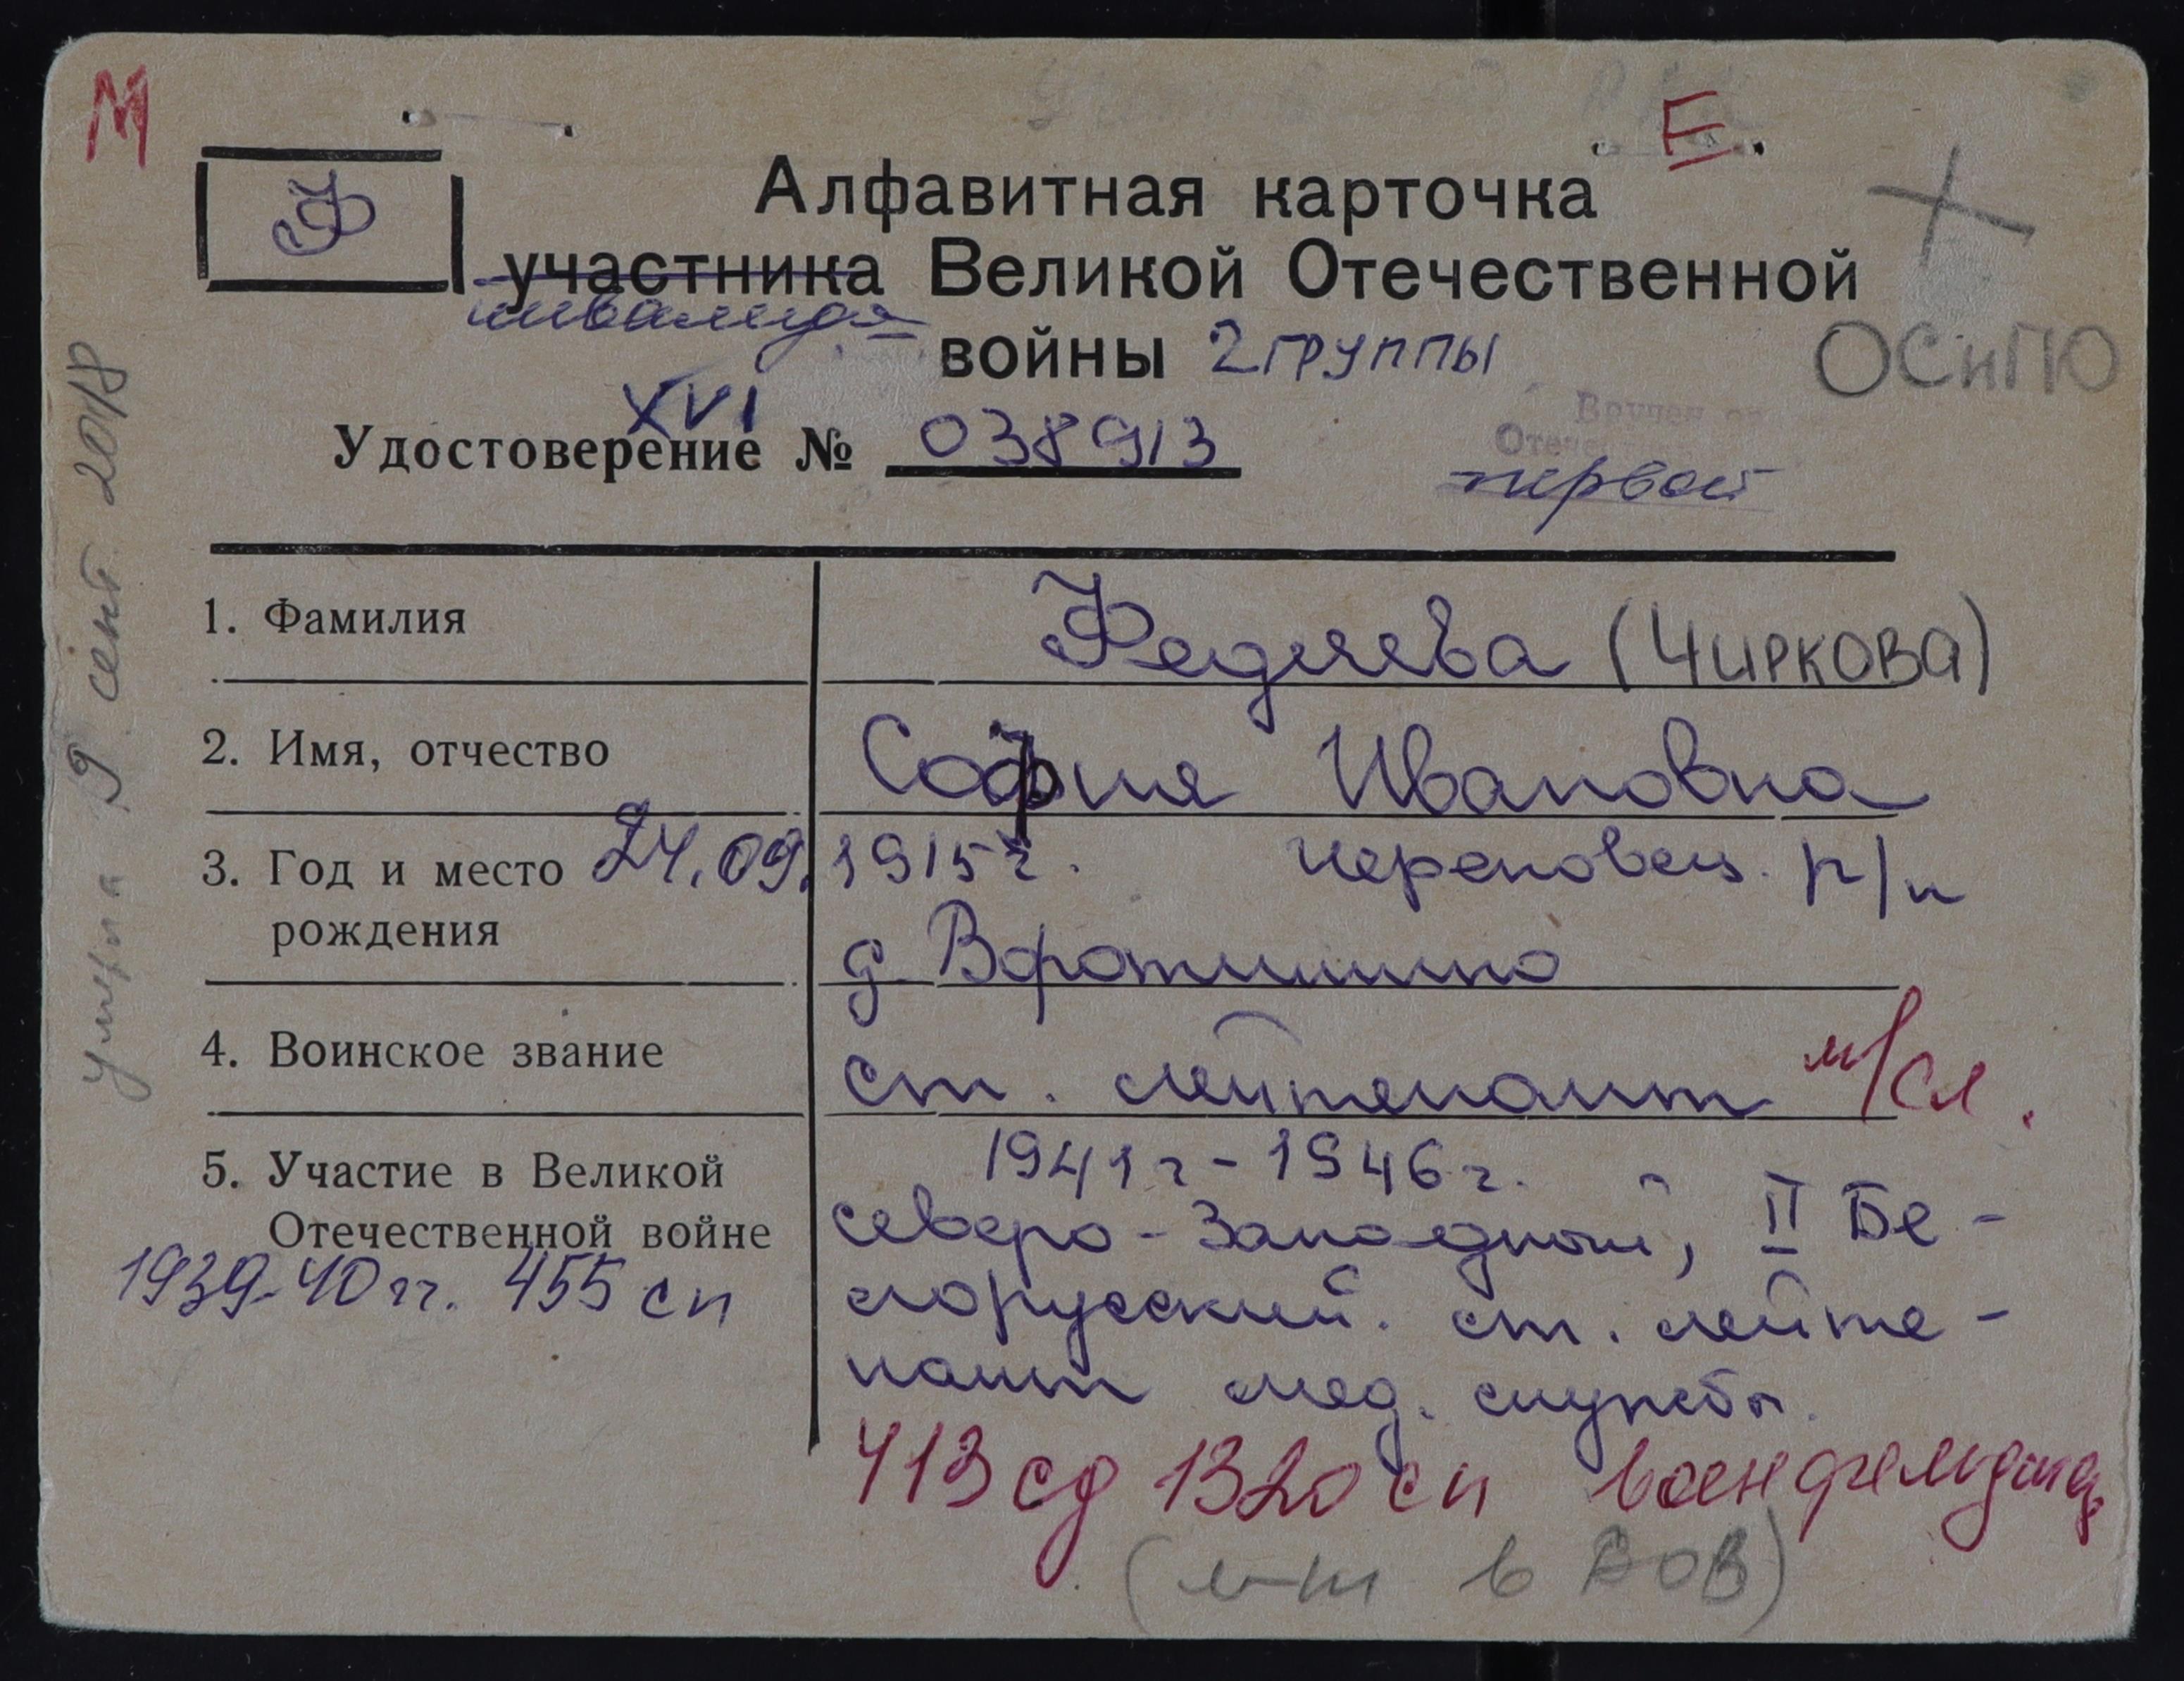 М
Е.
Ф
Алфавитная карточка
участника Великой Отечественной
инвалида
войны 2 группы
ОСиПЮ
XVI
Удостоверение № 038913
первой
умерла 9 сент 2018
1. Фамилия Федяева (Чиркова)
2. Имя, отчество София Ивановна
3. Год и место 24.09.1915г. Череповец. р/н
рождения д. Воротишино
4. Воинское звание ст. лейтенант м/сл.
5. Участие в Великой 1941г - 1946г.
Отечественной войне северо-Западный, II Бе-
1939-40 гг. 455 сп лорусский. ст. лейте-
нант мед. службы.
413 сд 1320 сп военфельдшер
(л-т в ВОВ)